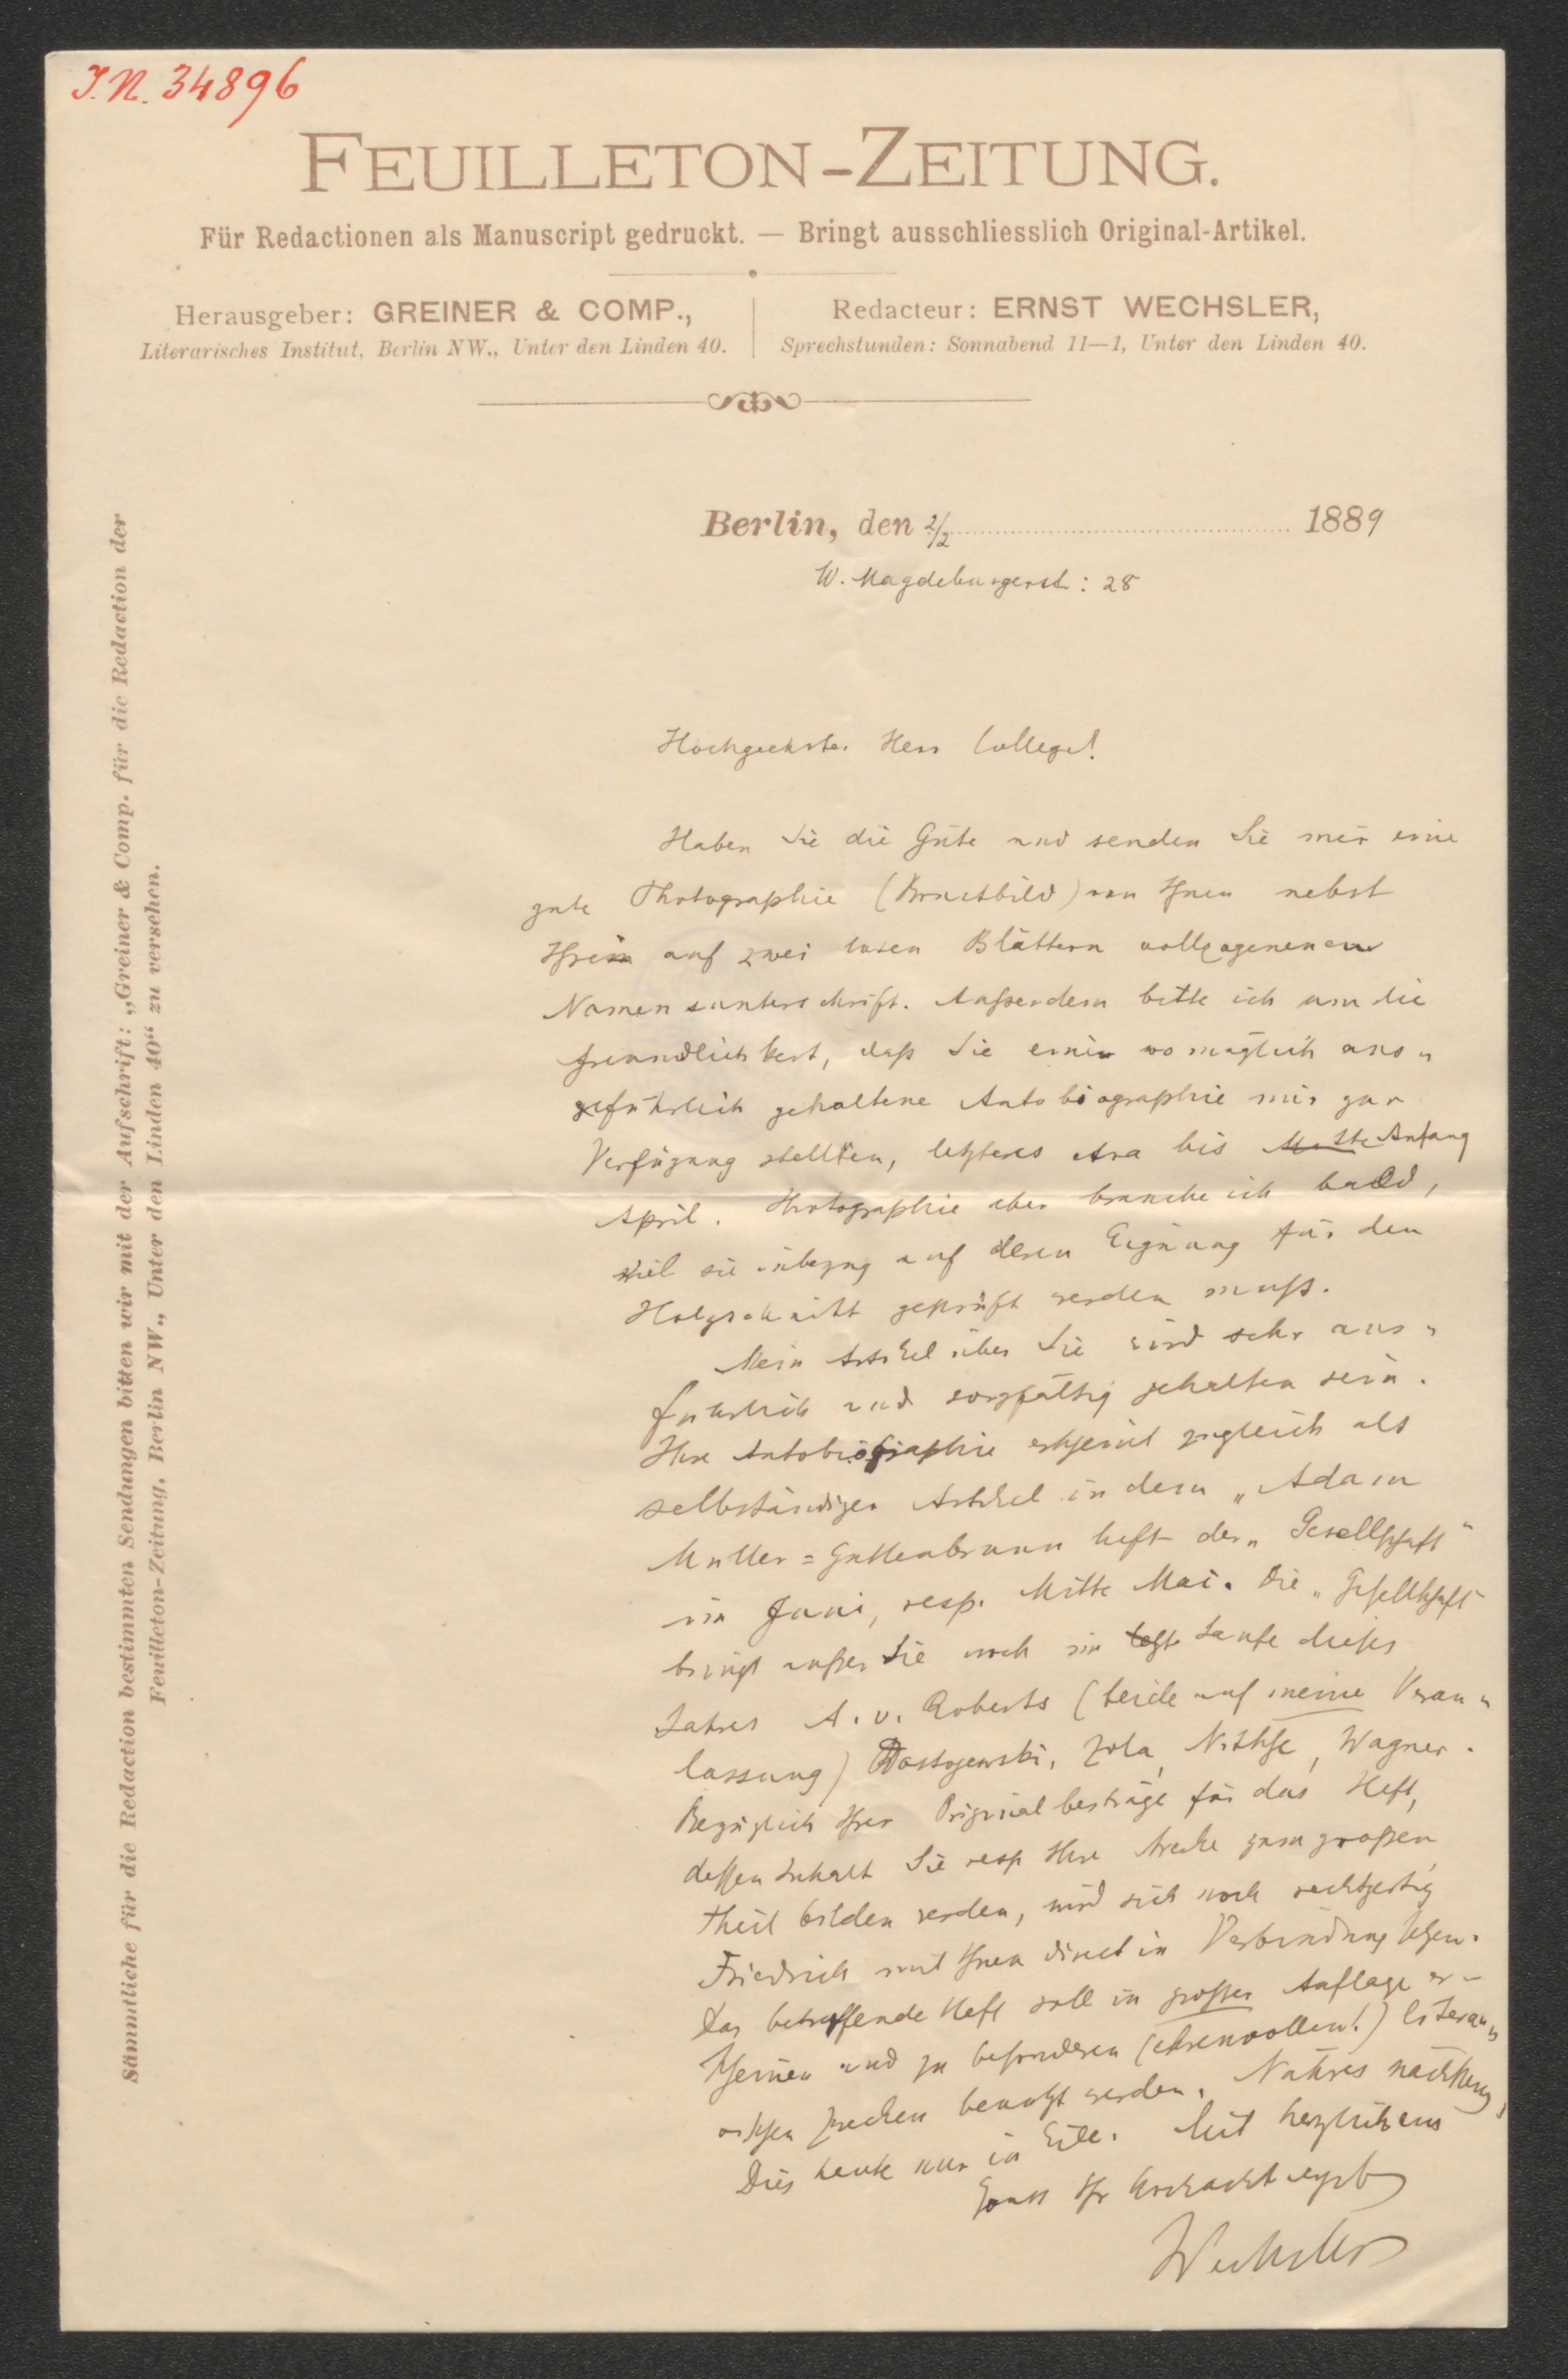 J.N. 34896
FEUILLETON-ZEITUNG.
Für Redactionen als Manuscript gedruckt. — Bringt ausschliesslich Original-Artikel.
Herausgeber: GREINER & COMP.,
Literarisches Institut, Berlin NW., Unter den Linden 40.
Redacteur: ERNST WECHSLER,
Sprechstunden: Sonnabend 11—1, Unter den Linden 40.
Sämmtliche für die Redaction bestimmten Sendungen bitten wir mit der Aufschrift: „Greiner & Comp. für die Redaction der
Feuilleton-Zeitung, Berlin NW., Unter den Linden 40“ zu versehen.
Berlin, den 2/2 1889
W. Magdeburgerstr: 28
Hochgeehrter Herr College!
Haben Sie die Güte und senden Sie mir eine
gute Photographie (Brustbild) von Ihnen nebst
Ihrer auf zwei losen Blättern vollzogenen
Namensunterschrift. Außerdem bitte ich um die
Freundlichkeit, daß Sie eine womöglich aus=
geführlich gehaltene Autobiographie mir zur
Verfügung stellten, letzteres etwa bis Mitte Anfang
April. Photographie aber brauche ich bald,
weil sie inbezug auf deren Eignung für den
Holzschnitt geprüft werden muß.
Mein Artikel über Sie wird sehr aus=
führlich und sorgfältig gehalten sein.
Ihre Autobiographie erscheint zugleich als
selbständiger Artikel in dem „Adam
Müller=Guttenbrunn heft der „Gesellschaft“
im Juni, resp. Mitte Mai. Die „Gesellschaft“
bringt außer Sie noch im Laufe dieses
Jahres A. v. Roberts (beide auf meine Veran=
lassung) Dostojewski, Zola, Nitzsche, Wagner.
Bezüglich Ihrer Originalbeiträge für das Heft,
dessen Inhalt Sie resp Ihre Werke zum großen
Theil bilden werden, wird sich noch rechtzeitig
Friedrich mit Ihnen direct in Verbindung setzen.
Das betreffende Heft soll in großer Auflage er=
scheinen und zu besonderen (ehrenvollen!) literar=
ischen Zwecken benutzt werden. Näheres nächstens,
Dies heute nur in Eile. Mit herzlichem
Gruss Ihr hochachtungsv
Wechsler